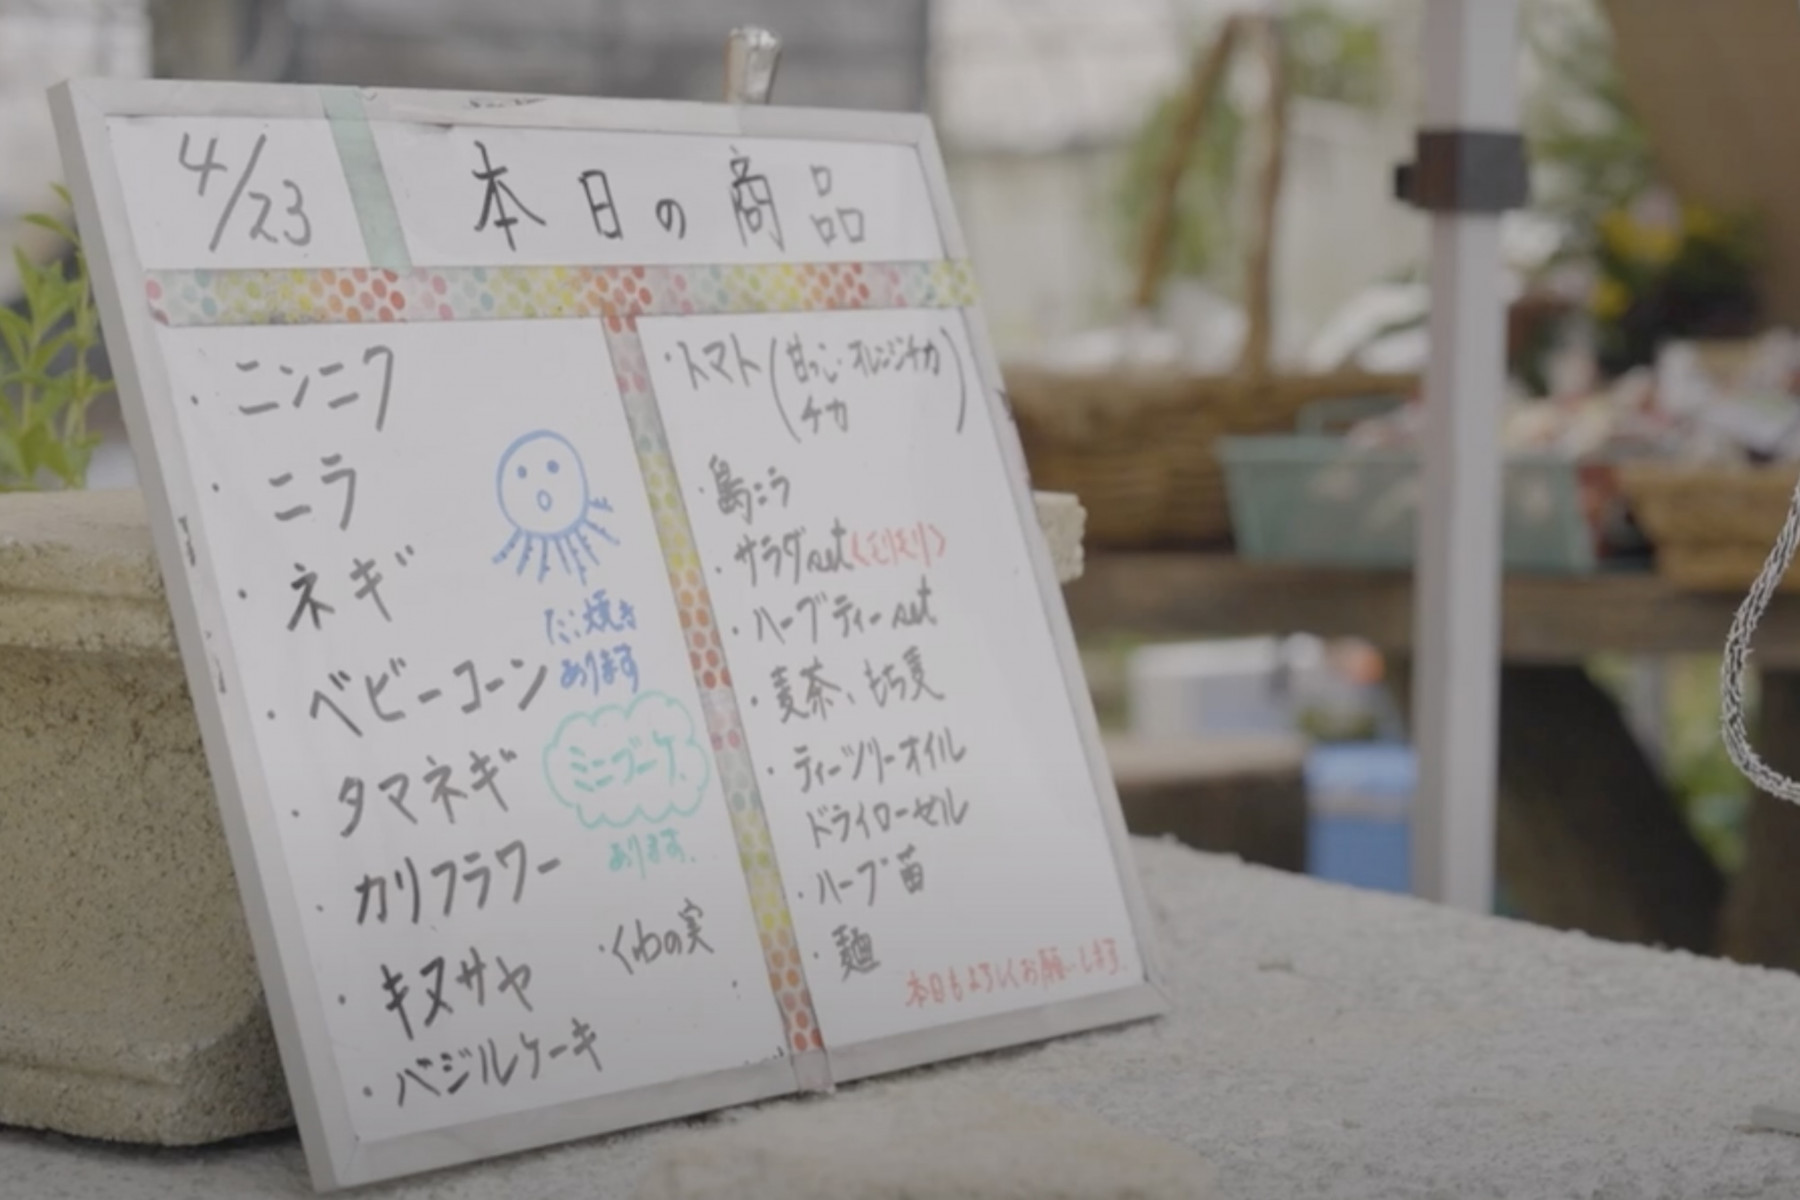 4/23 本日の商品
・ニンニク
・ニラ
・ネギ
・ベビーコーン
・タマネギ
・カリフラワー
・キヌサヤ
・バジルケーキ
たこ焼き
あります
ミニブーケ
あります。
・くわの実
・トマト(甘っこ・オレンジチカ
チカ)
・島ニラ
・サラダset
・ハーブティーset
・麦茶、もち麦
・ティーツリーオイル
ドライローゼル
・ハーブ苗
・麺
本日もよろしくお願いします。